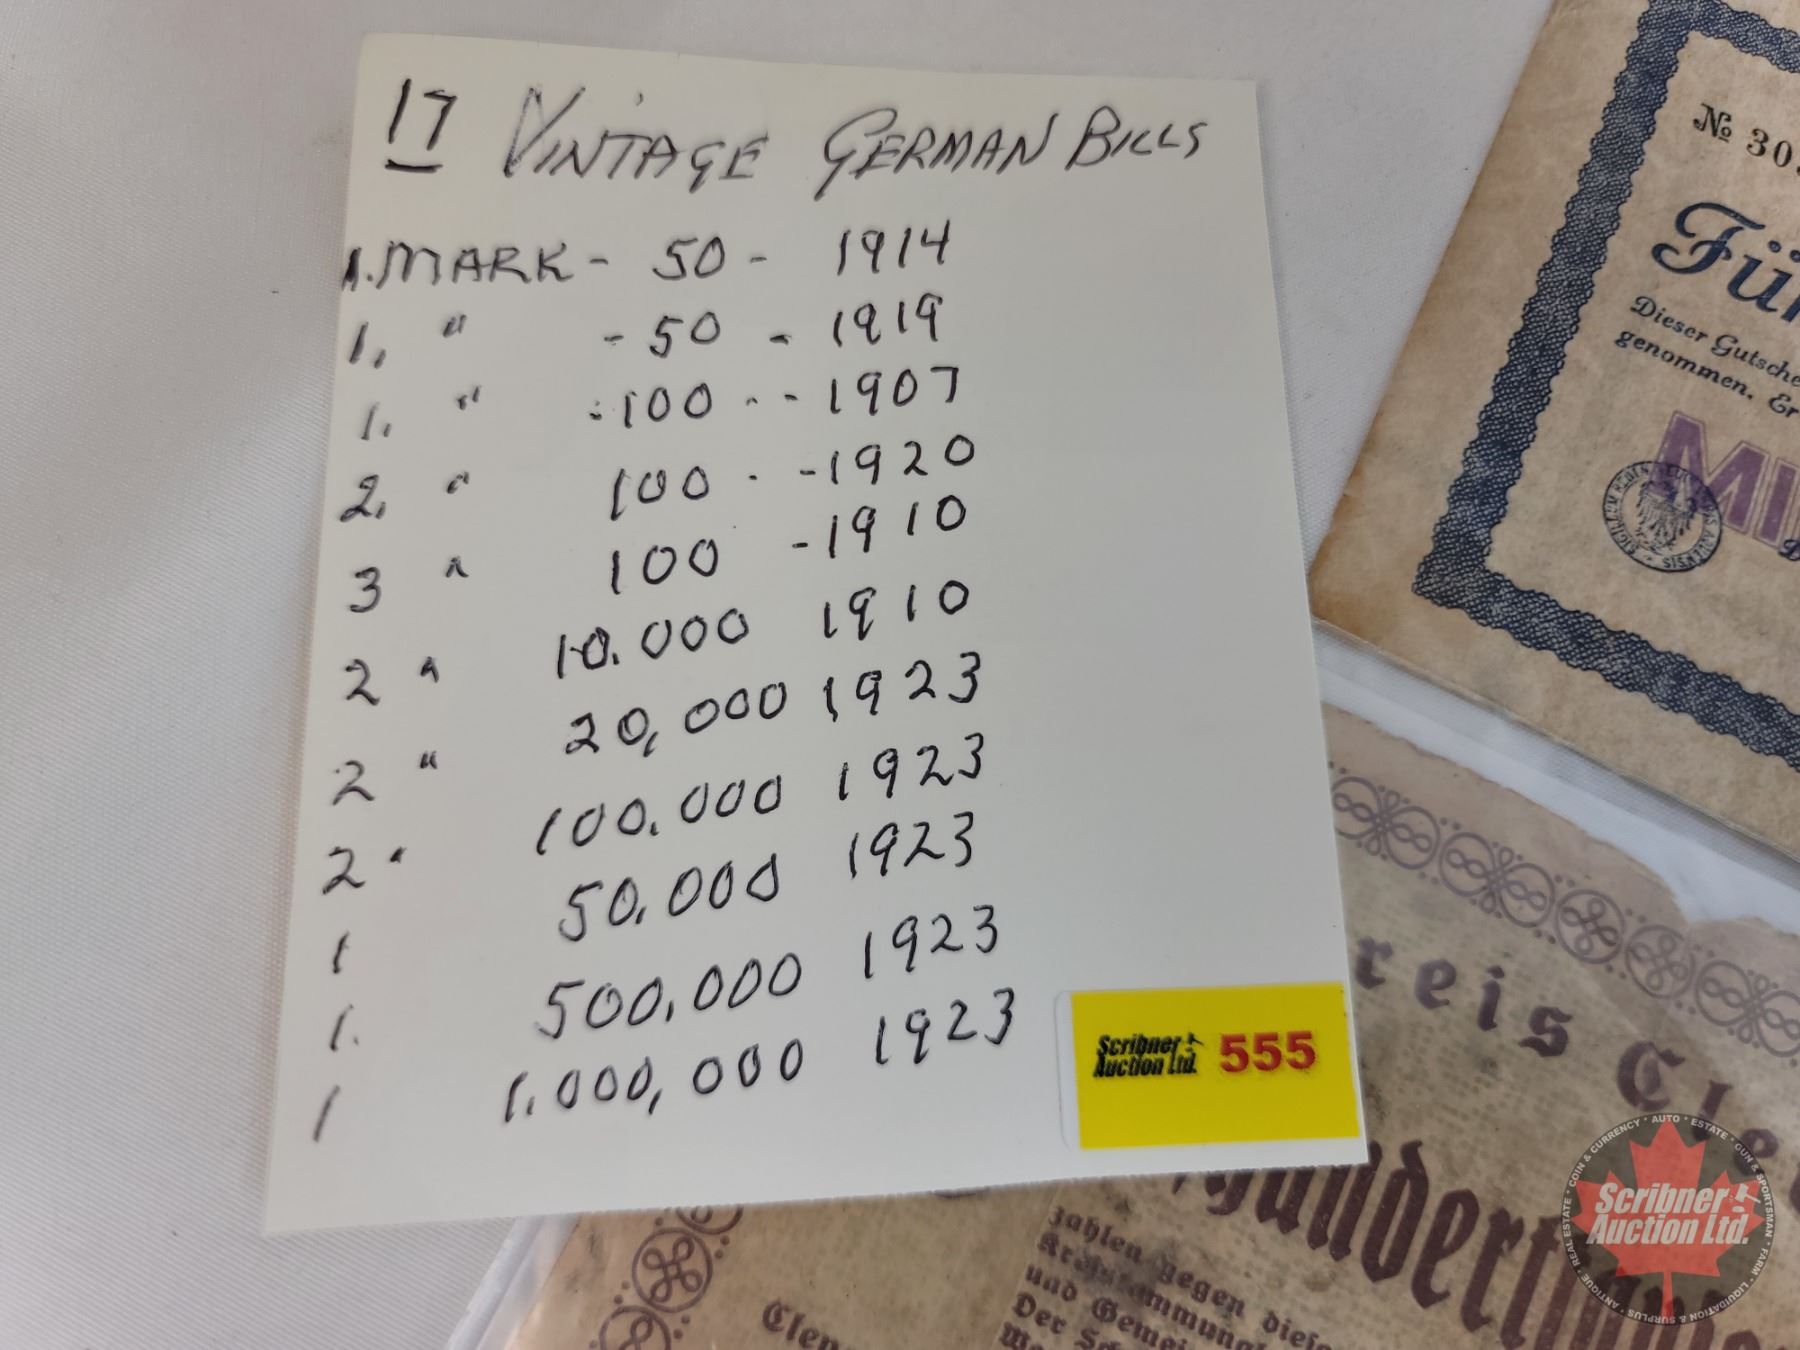 17 VINTAGE GERMAN BILLS
1. MARK - 50 - 1914
1. " - 50 - 1919
1. " - 100 - - 1907
2. " 100 - - 1920
3 " 100 - 1910
2 " 10.000 1910
2 " 20,000 1923
2 " 100.000 1923
1 50,000 1923
1. 500,000 1923
1 1.000,000 1923
Scribner Auction Ltd. 555
№ 30
Fü
Dieser Gutsche
genommen. Er
MI
reis Cle
hundert
zahlen gegen diese
und Gemei
Der Sch
Clen
COIN & CURRENCY • AUTO • ESTATE • GUN & SPORTSMAN • FARM • LIQUIDATION & SURPLUS • ANTIQUE • REAL ESTATE
Scribner
Auction Ltd.